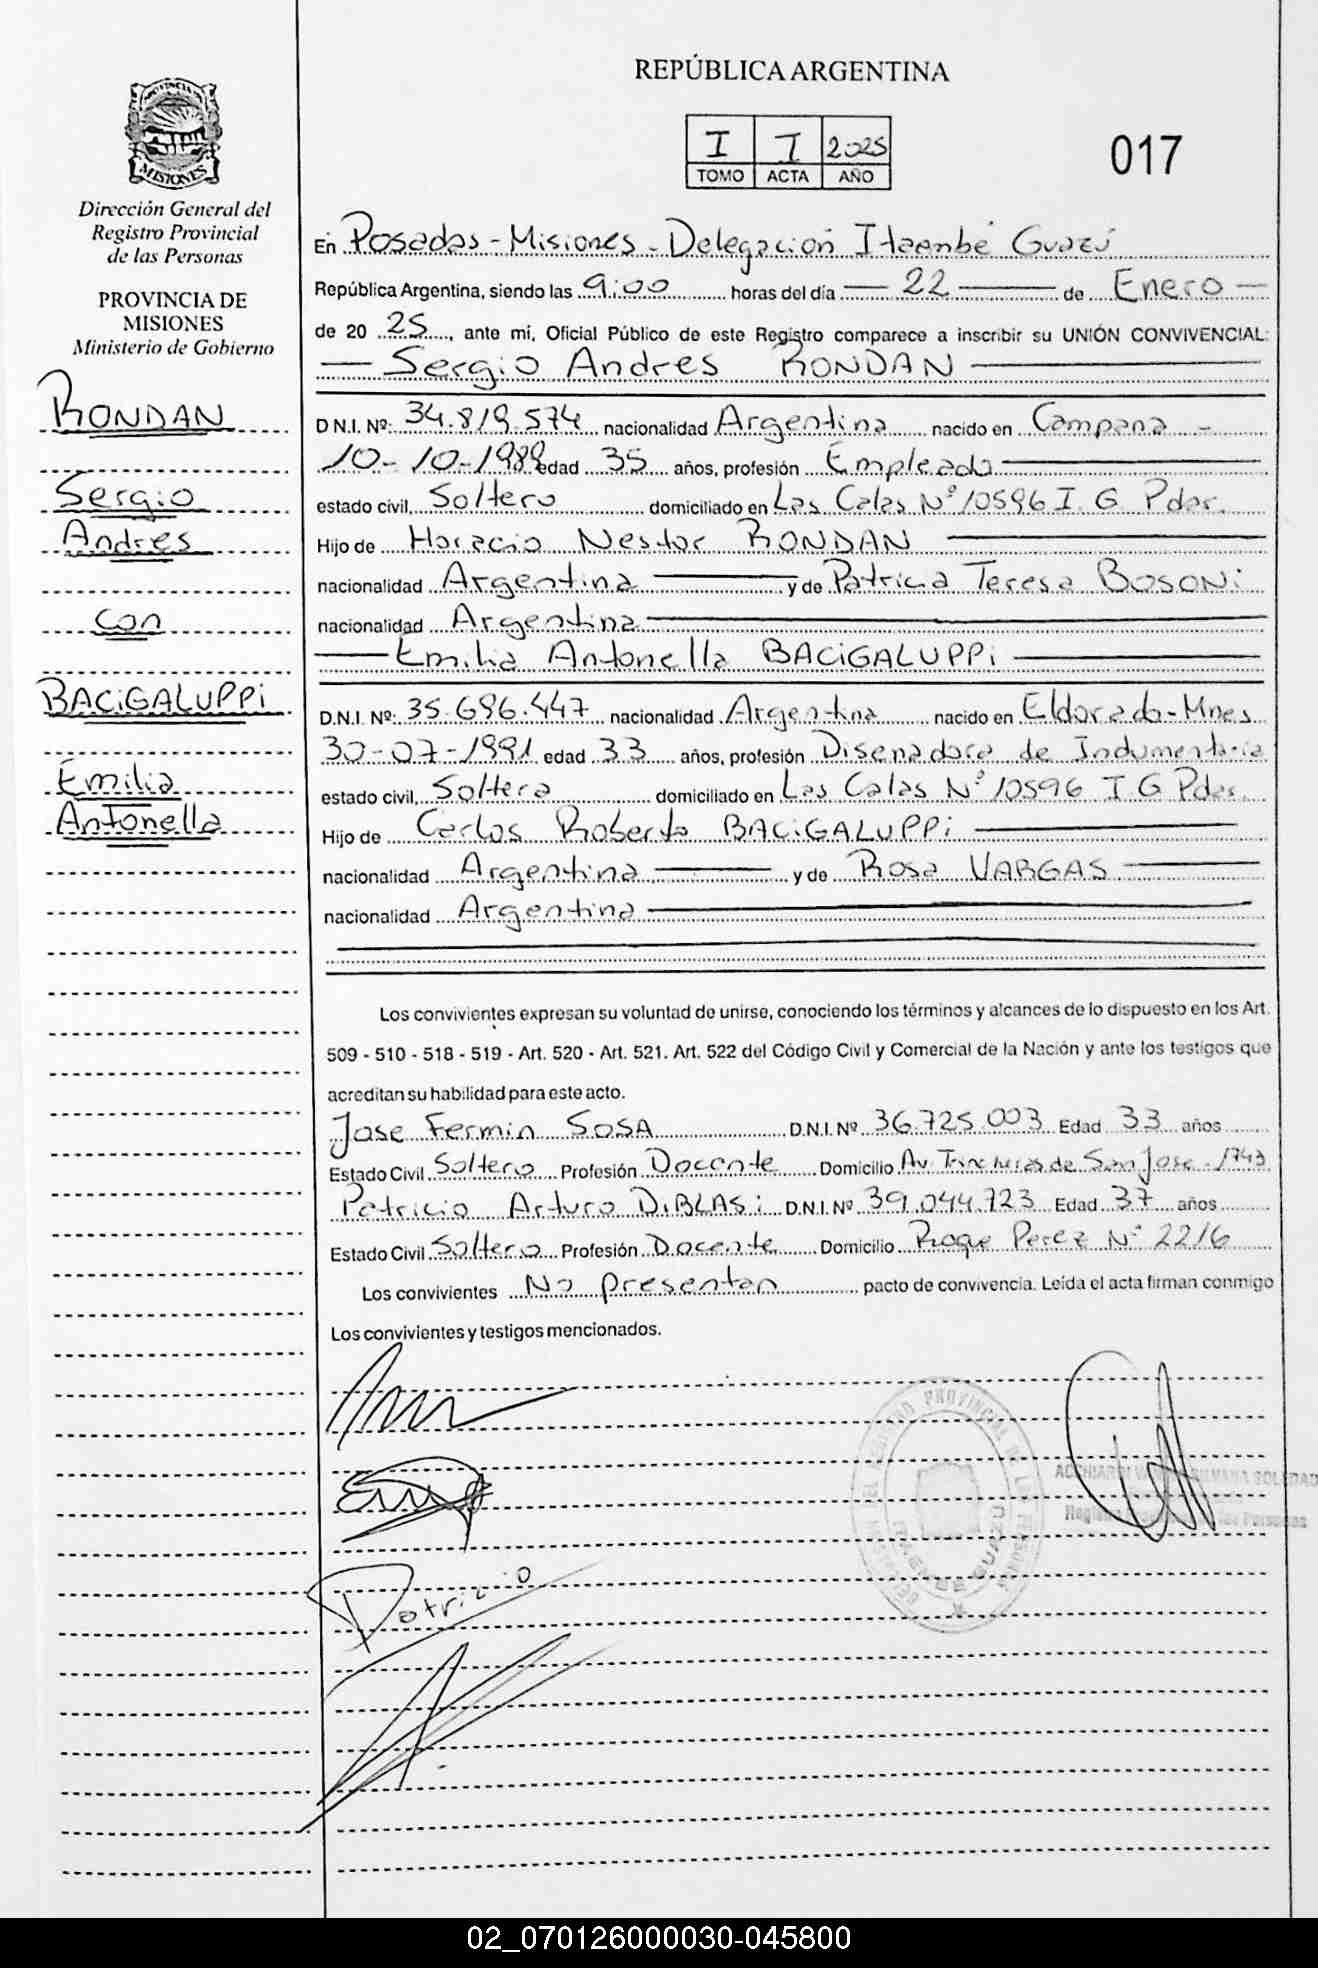 REPÚBLICA ARGENTINA
I I 2025
TOMO ACTA AÑO
017
PROVINCIA DE
MISIONES
Dirección General del
Registro Provincial
de las Personas
PROVINCIA DE
MISIONES
Ministerio de Gobierno
RONDAN
Sergio
Andres
con
BACiGALUPPi
Emilia
Antonella
En Posadas - Misiones - Delegación Itaembé Guazú
República Argentina, siendo las 9:00 horas del día 22 de Enero
de 20 25, ante mi, Oficial Público de este Registro comparece a inscribir su UNIÓN CONVIVENCIAL:
Sergio Andres RONDAN
D.N.I. Nº: 34.819.574 nacionalidad Argentina nacido en Campana -
10-10-1989 edad 35 años, profesión Empleado
estado civil, Soltero domiciliado en Las Calas Nº 10596 I. G Pdas.
Hijo de Horacio Nestor RONDAN
nacionalidad Argentina y de Patricia Teresa BOSONi
nacionalidad Argentina
Emilia Antonella BACiGALUPPi
D.N.I. Nº: 35.696.447 nacionalidad Argentina nacido en Eldorado-Mnes
30-07-1991 edad 33 años, profesión Disenadora de Indumentaria
estado civil, Soltera domiciliado en Las Calas Nº 10596 I.G Pdas.
Hijo de Carlos Roberto BACiGALUPPi
nacionalidad Argentina y de Rosa VARGAS
nacionalidad Argentina
Los convivientes expresan su voluntad de unirse, conociendo los términos y alcances de lo dispuesto en los Art.
509 - 510 - 518 - 519 - Art. 520 - Art. 521. Art. 522 del Código Civil y Comercial de la Nación y ante los testigos que
acreditan su habilidad para este acto.
Jose Fermin SOSA D.N.I. Nº 36.725.003 Edad 33 años
Estado Civil Soltero Profesión Docente Domicilio Av. Trincheras de San Jose - 1743
Patricio Arturo DiBLASi D.N.I. Nº 39.044.723 Edad 37 años
Estado Civil Soltero Profesión Docente Domicilio Roque Perez Nº 2216
Los convivientes No presentan pacto de convivencia. Leída el acta firman conmigo
Los convivientes y testigos mencionados.
Patricio
02_070126000030-045800